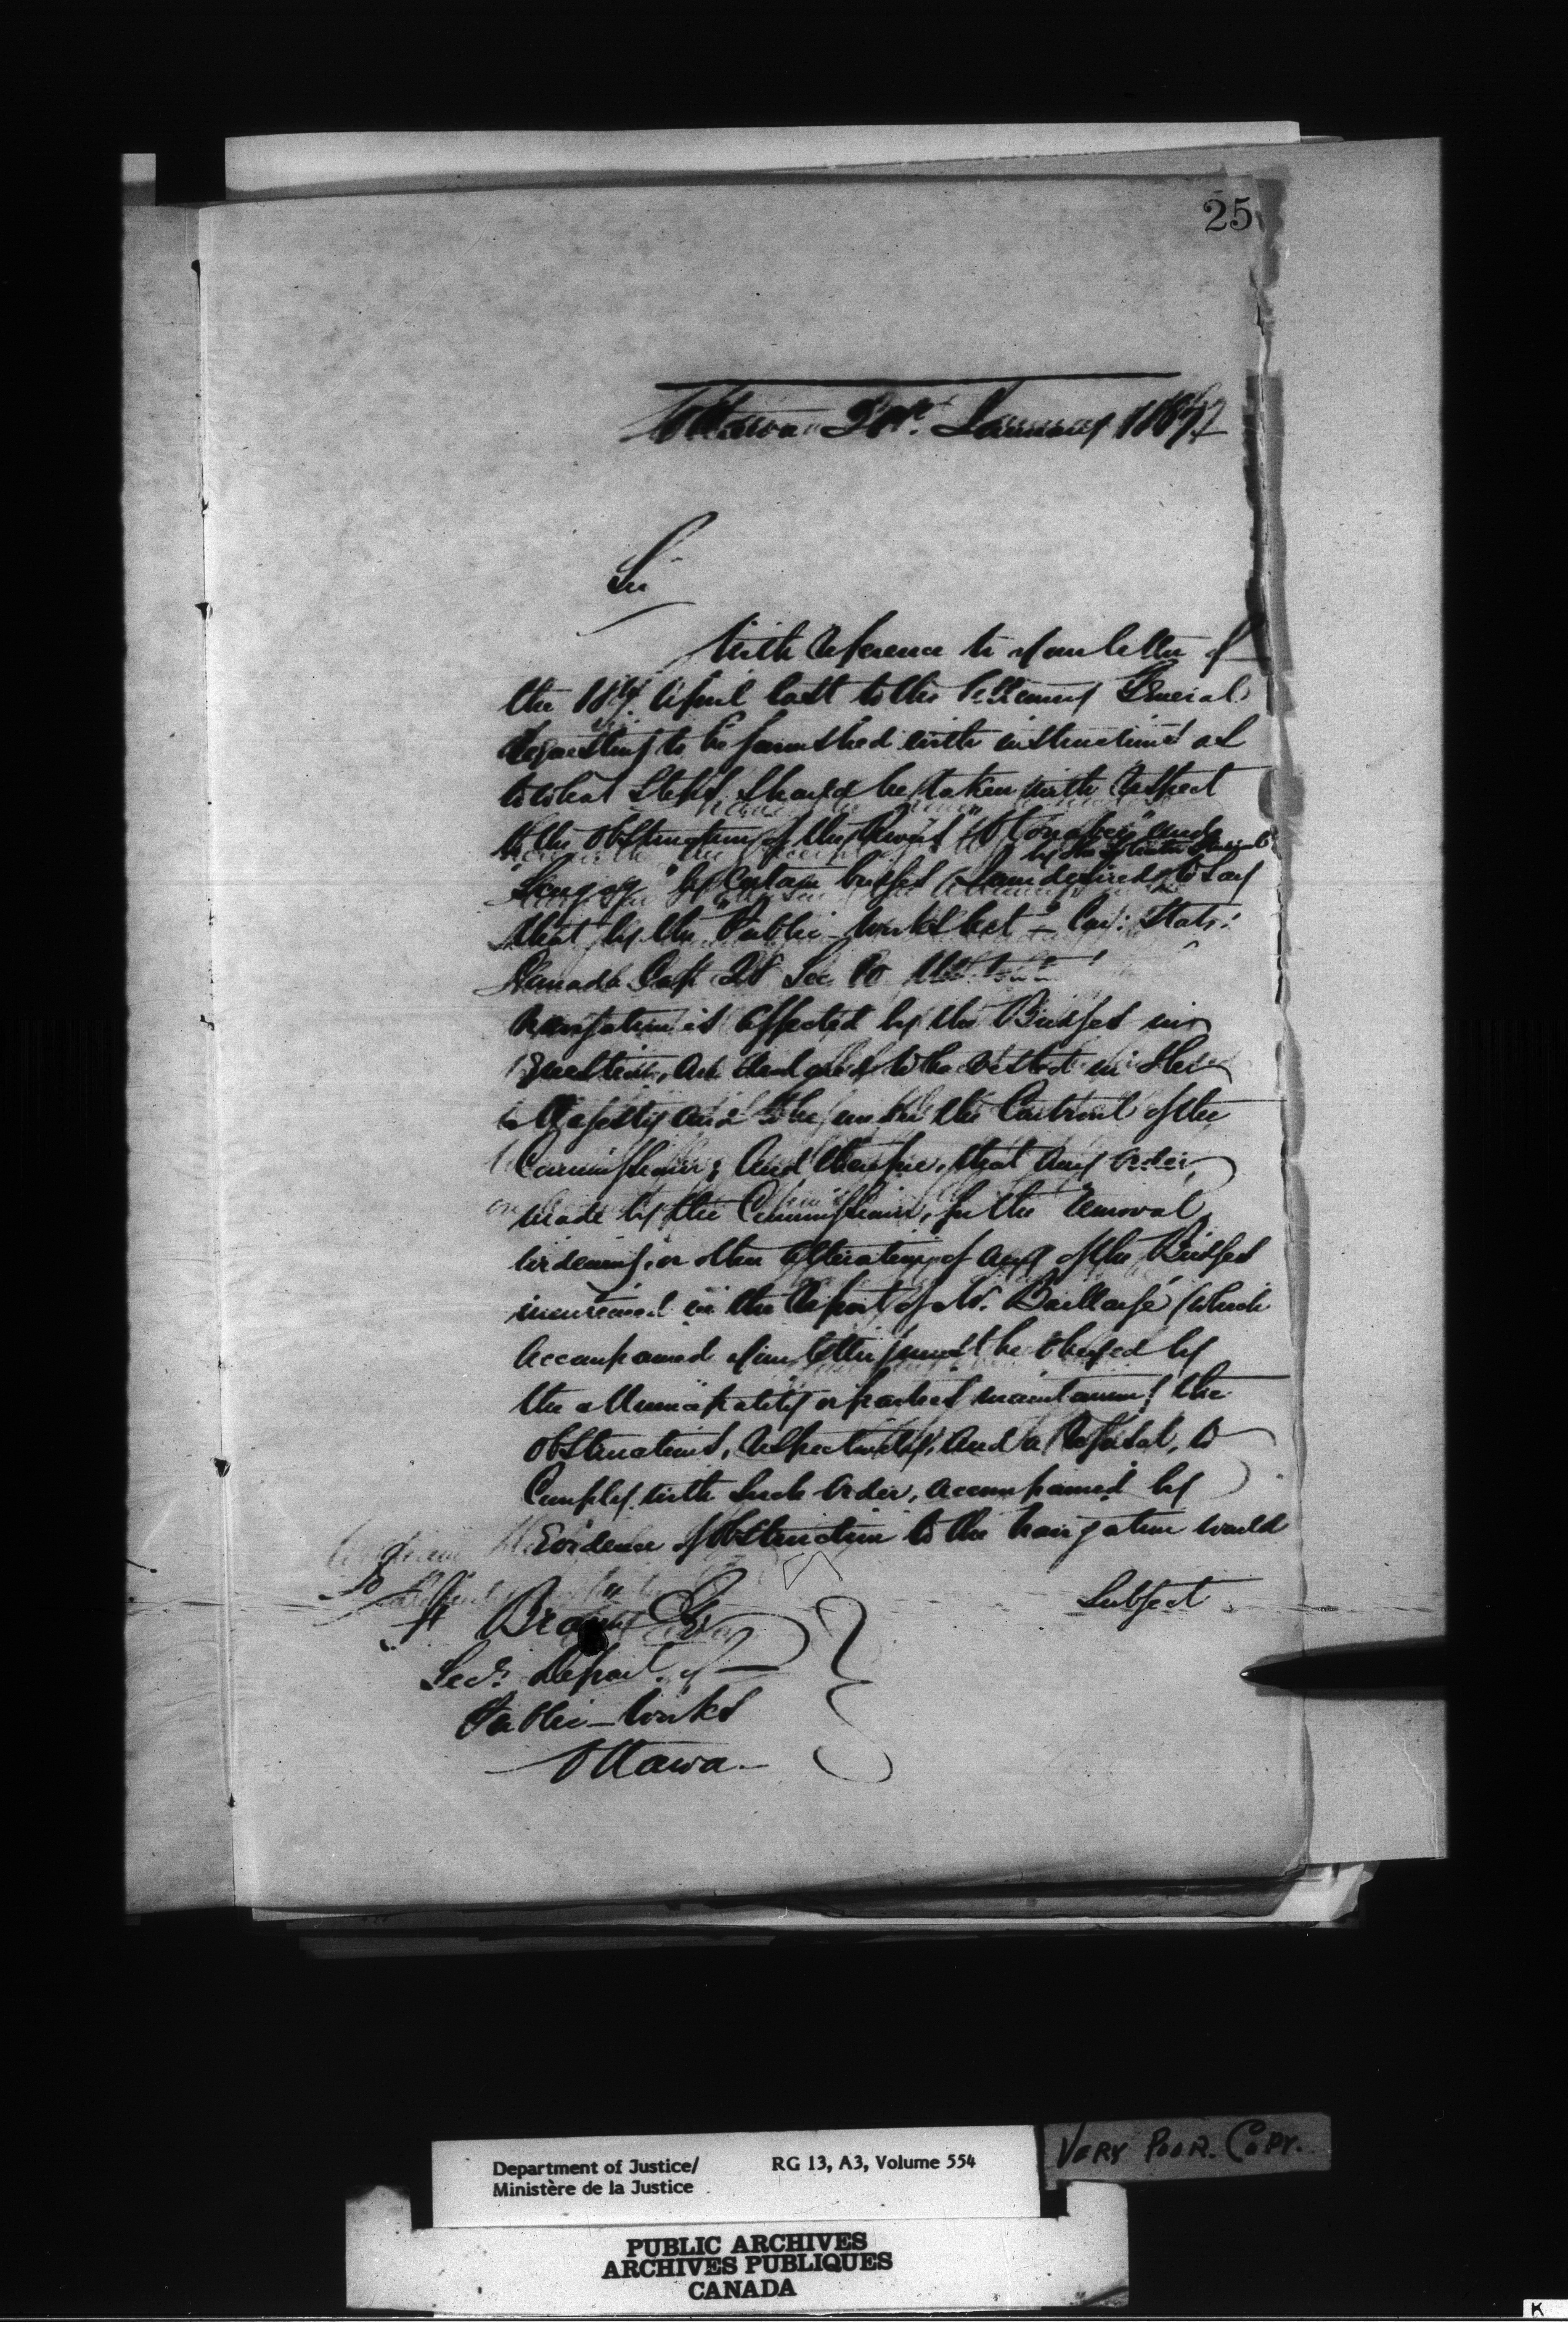 25
Ottawa January 1867
Sir
With reference to your letter of
the 18th April last to the Attorney General
requesting to be furnished with instructions as
to what steps should be taken with respect
to the obstruction of the Rivers "Otonabee" and
"Scugog" by certain bridges I am desired by the Solicitor General to say
that by the "Public Works Act" – Con: Stats:
Canada Cap 28 Sec 10
navigation is affected by the Bridges in
question, are declared to be vested in Her
Majesty and to be under the Control of the
Commissioner; and therefore, that any order,
made by the Commissioner, for the removal
widening, or other alteration of any of the Bridges
mentioned in the Report of Mr. Baillargé (which
accompanied your letter) must be obeyed by
the Municipality or parties maintaining the
obstructions, respectively, and a refusal, to
Comply with such order, accompanied by
Evidence of obstruction to the navigation would
subject
To
Braun Esqr
Secy. Depart. of
Public Works
Ottawa
Department of Justice/
Ministère de la Justice
RG 13, A3, Volume 554
VERY POOR COPY.
PUBLIC ARCHIVES
ARCHIVES PUBLIQUES
CANADA
K